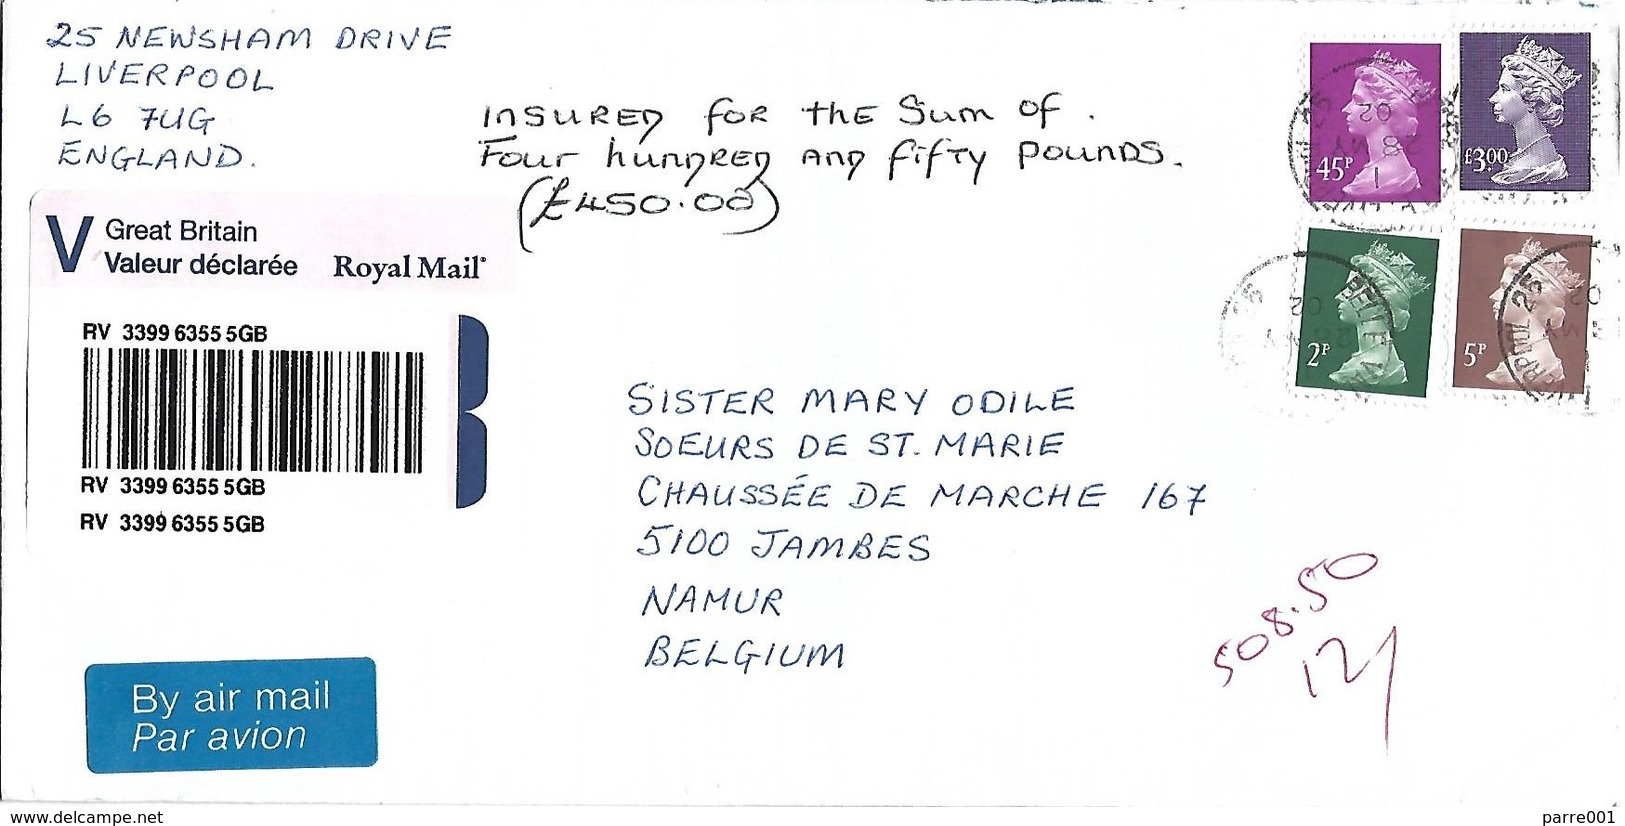 25 NEWSHAM DRIVE
LIVERPOOL
L6 7UG
ENGLAND.
INSURED FOR THE SUM OF.
FOUR HUNDRED AND FIFTY POUNDS.
(£450.00)
V Great Britain
Valeur déclarée Royal Mail
RV 3399 6355 5GB
RV 3399 6355 5GB
RV 3399 6355 5GB
45P
£3.00
2P
5P
SISTER MARY ODILE
SOEURS DE ST. MARIE
CHAUSSÉE DE MARCHE 167
5100 JAMBES
NAMUR
BELGIUM
508.50
By air mail
Par avion
delcampe.net
parre001